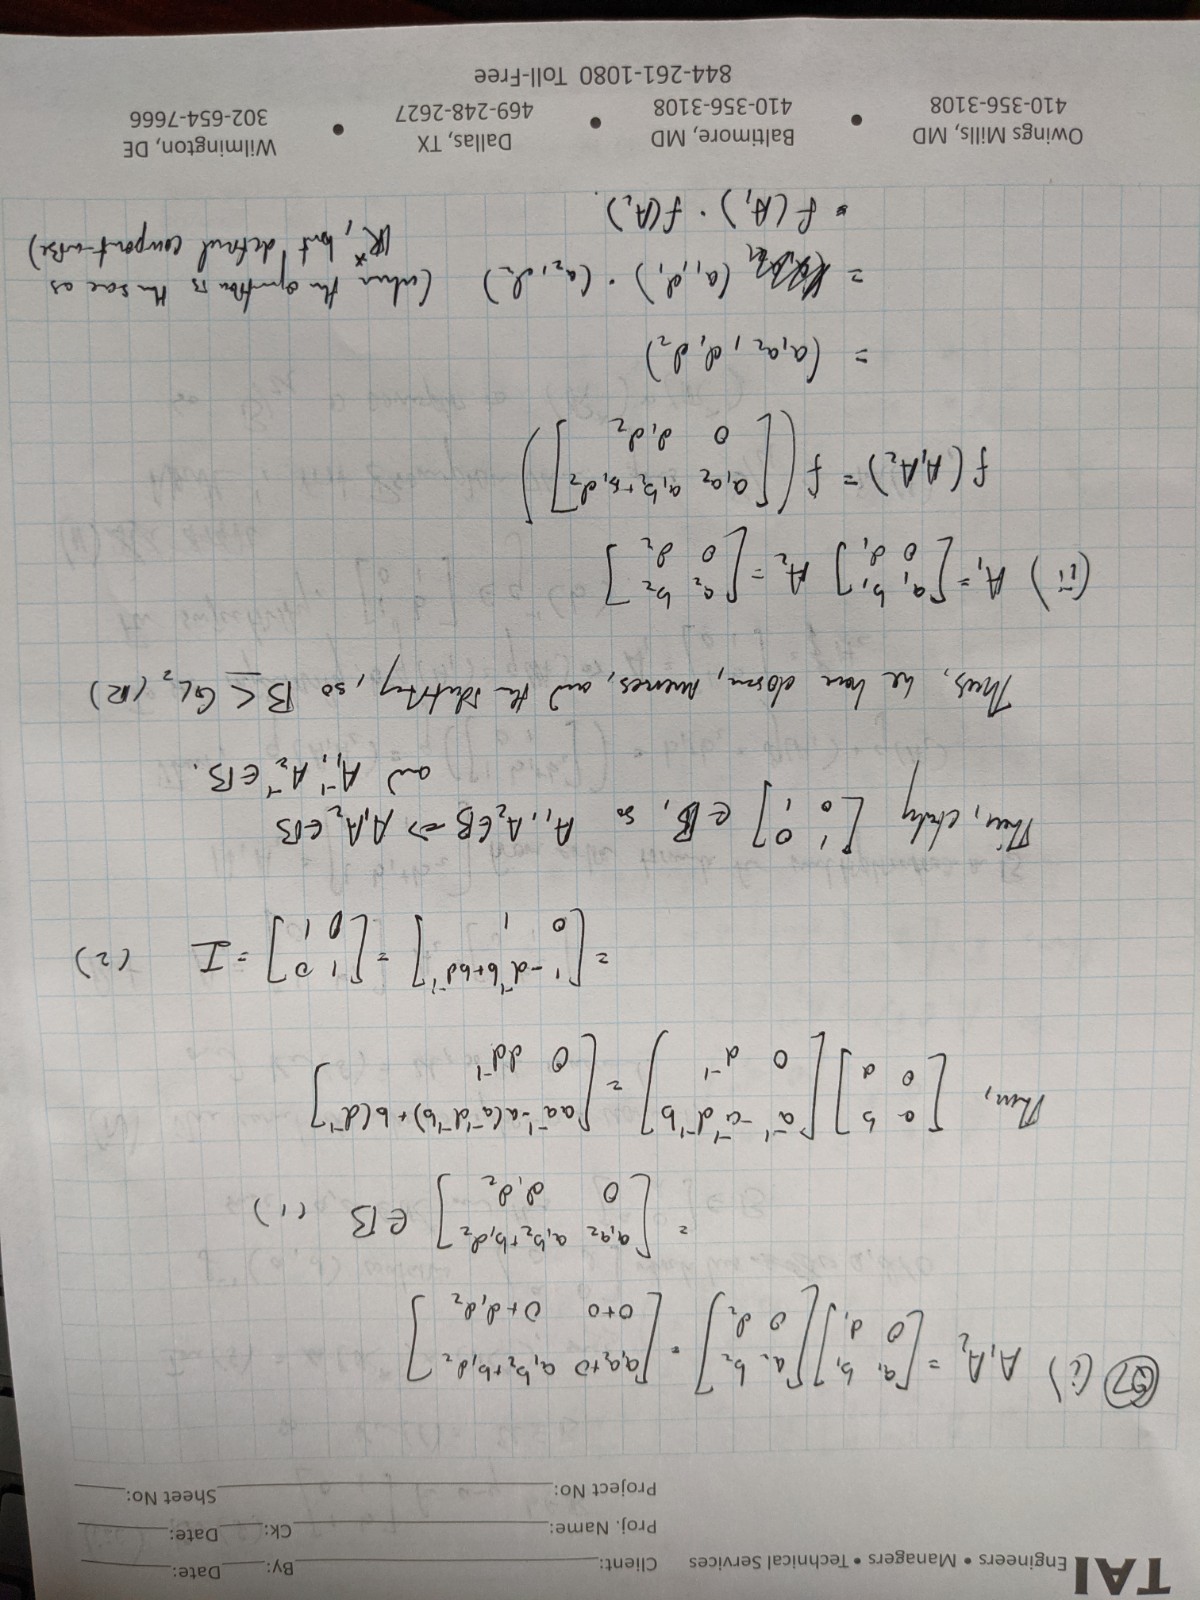 TAI Engineers • Managers • Technical Services
Client: By: Date:
Proj. Name: Ck: Date:
Project No: Sheet No:
Q7 (i) A₁A₂ = [a₁ b₁; 0 d₁] [a₂ b₂; 0 d₂] = [a₁a₂+0 a₁b₂+b₁d₂; 0+0 0+d₁d₂]
= [a₁a₂ a₁b₂+b₁d₂; 0 d₁d₂] ∈ B (1)
Then, [a b; 0 d] [a⁻¹ -a⁻¹d⁻¹b; 0 d⁻¹] = [aa⁻¹ -a(a⁻¹d⁻¹b)+b(d⁻¹); 0 dd⁻¹]
= [1 -d⁻¹b+bd⁻¹; 0 1] = [1 0; 0 1] = I (2)
Then, clearly [1 0; 0 1] ∈ B, so A₁, A₂ ∈ B ⇒ A₁A₂ ∈ B
and A₁⁻¹, A₂⁻¹ ∈ B.
Thus, we have closure, inverses, and the identity, so B ≤ GL₂(R)
(ii) A₁ = [a₁ b₁; 0 d₁] A₂ = [a₂ b₂; 0 d₂]
f(A₁A₂) = f([a₁a₂ a₁b₂+b₁d₂; 0 d₁d₂])
= (a₁a₂, d₁d₂)
= (a₁,d₁) · (a₂,d₂) (when the operation is the same as
R*, but defined component-wise)
= f(A₁) · f(A₂).
Owings Mills, MD
410-356-3108
•
Baltimore, MD
410-356-3108
•
Dallas, TX
469-248-2627
•
Wilmington, DE
302-654-7666
844-261-1080 Toll-Free